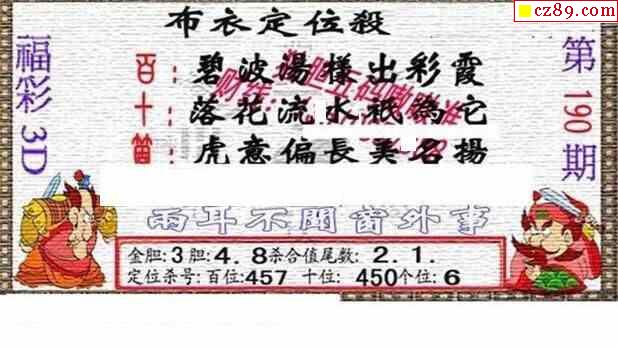 cz89.com
布衣定位殺
福彩3D
第190期
百：碧波揚樣出彩霞
十：落花流水祇為它
箇：虎意偏長美名揚
兩耳不聞窗外事
金胆:3胆:4.8杀合值尾数:2.1.
定位杀号:百位:457 十位:450个位:6